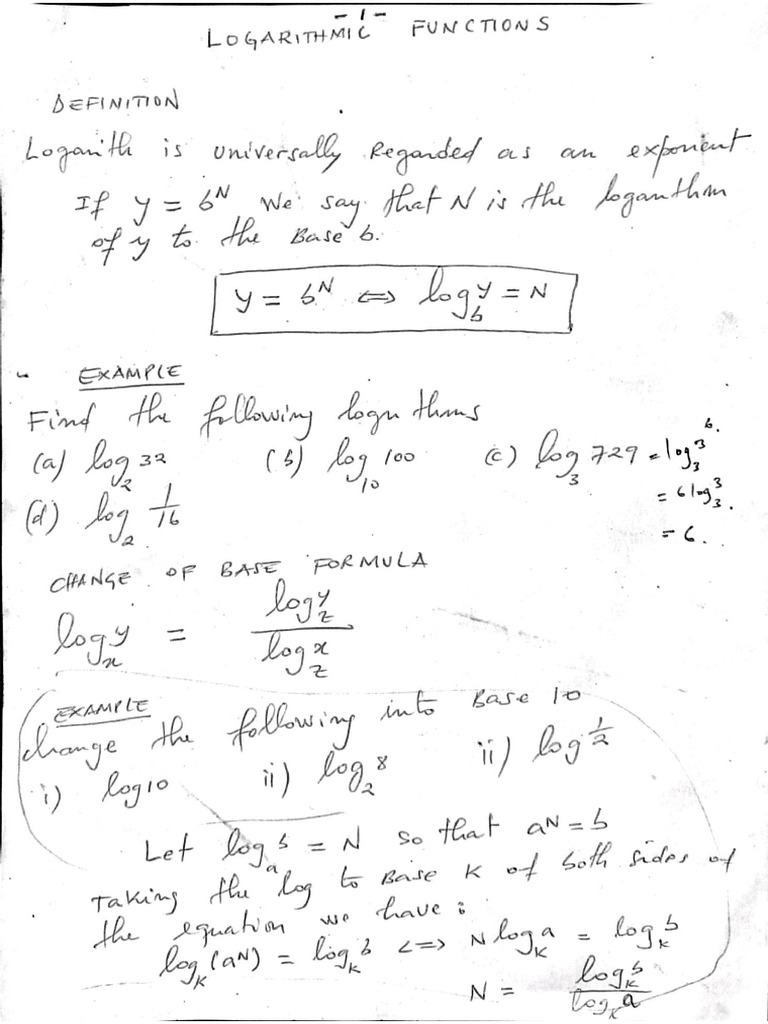 - 1 -
LOGARITHMIC FUNCTIONS
DEFINITION
Logarith is universally Regarded as an exponent
If y = b^N We say that N is the logarithm
of y to the Base b.
y = b^N ⇔ log_b y = N
EXAMPLE
Find the following logarithms
(a) log_2 32 (b) log_10 100 (c) log_3 729 = log_3 3^6.
= 6 log_3 3.
(d) log_2 1/16
= 6.
CHANGE OF BASE FORMULA
log_x y = log_z y / log_z x
EXAMPLE
Change the following into Base 10
i) log 10 ii) log_2 8 ii) log 1/2
Let log_a b = N so that a^N = b
Taking the log to Base K of both sides of
the equation we have:
log_K (a^N) = log_K b <=> N log_K a = log_K b
N = log_K b / log_K a